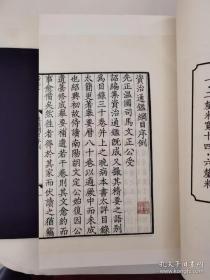 資治通鑑綱目序例
先正温國司馬文正公受
詔編集資治通鑑既成又撮其精要之語別
為目錄三十卷并上之晚病本書太詳目錄
太簡更著舉要曆八十卷以適厥中而未成
也紹興初故侍讀南陽胡文定公始復因公
遺藁修成舉要補遺若干卷則其文愈約而
事愈備矣然往者得於其家而伏讀之猶竊
米寬十四·六釐米